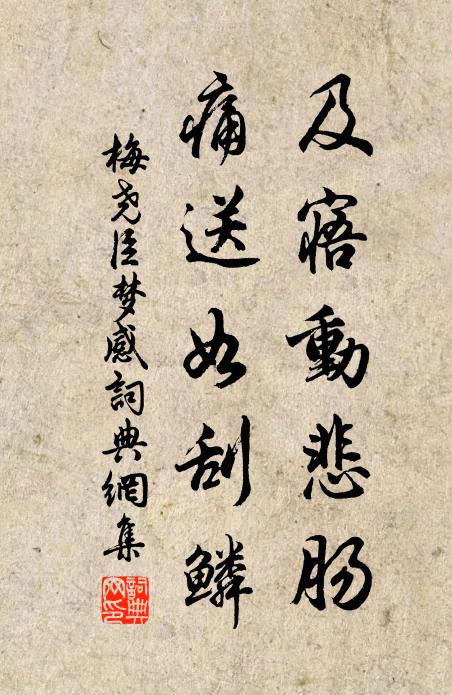 及寤動悲腸
痛送如刮鱗
梅尧臣梦感詞典網集
詞典网印